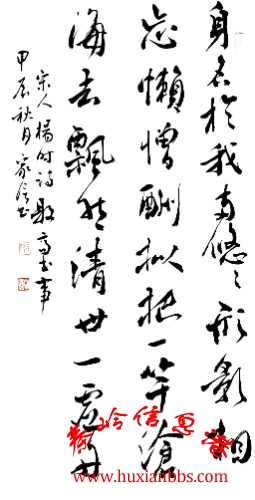 身名於我两悠々形影相
忘懶憎酬拟把一竿滄
海去飄然清世一虛舟
宋人楊时诗书事
甲辰秋月家信书
www.huxianbbs.com